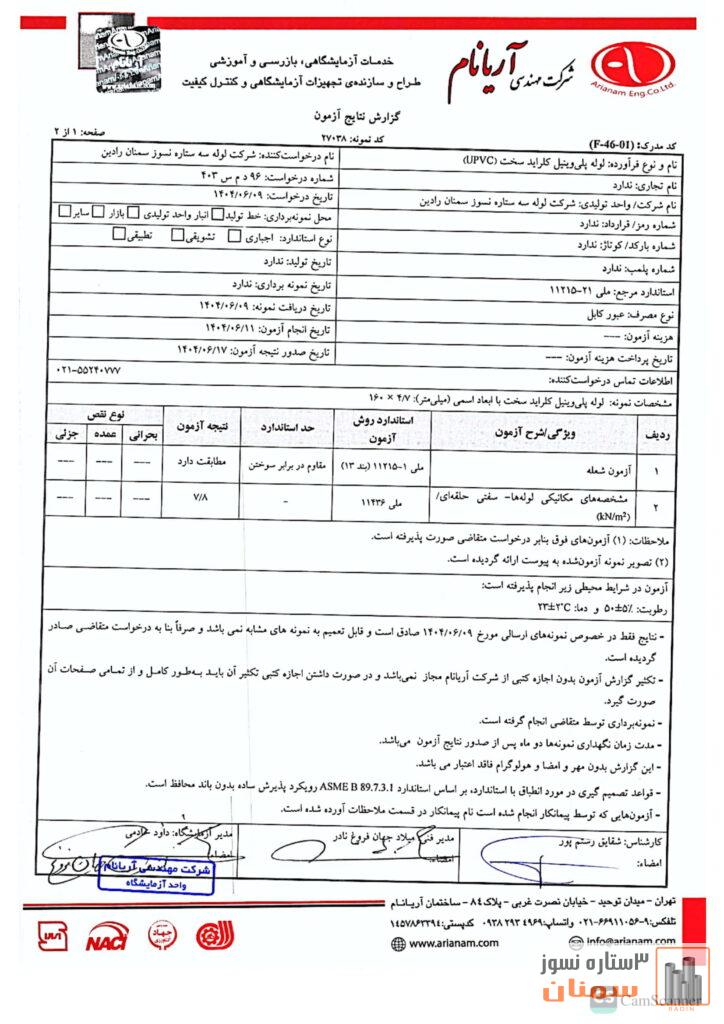 شرکت مهندسی آریانام
Arianam Eng.Co.Ltd.
خدمات آزمایشگاهی، بازرسی و آموزشی
طراح و سازنده‌ی تجهیزات آزمایشگاهی و کنترل کیفیت
آریانام
گزارش نتایج آزمون
کد مدرک: (F-46-01)
کد نمونه: ۲۷۰۳۸
صفحه: ۱ از ۲
نام و نوع فرآورده: لوله پلی‌وینیل کلراید سخت (UPVC)
نام درخواست‌کننده: شرکت لوله سه ستاره نسوز سمنان رادین
نام تجاری: ندارد
شماره درخواست: ۹۶ د م س ۴۰۳
نام شرکت/ واحد تولیدی: شرکت لوله سه ستاره نسوز سمنان رادین
تاریخ درخواست: ۱۴۰۴/۰۶/۰۹
شماره رمز/ قرارداد: ندارد
محل نمونه‌برداری: خط تولید انبار واحد تولیدی بازار سایر
شماره بارکد/ کوتاژ: ندارد
نوع استاندارد: اجباری تشویقی تطبیقی
شماره پلمب: ندارد
تاریخ تولید: ندارد
تاریخ نمونه برداری: ندارد
استاندارد مرجع: ملی ۲۱-۱۱۲۱۵
تاریخ دریافت نمونه: ۱۴۰۴/۰۶/۰۹
نوع مصرف: عبور کابل
تاریخ انجام آزمون: ۱۴۰۴/۰۶/۱۱
هزینه آزمون: ----
تاریخ صدور نتیجه آزمون: ۱۴۰۴/۰۶/۱۷
تاریخ پرداخت هزینه آزمون: ----
اطلاعات تماس درخواست‌کننده:
۰۲۱-۵۵۲۴۰۷۷۷
مشخصات نمونه: لوله پلی‌وینیل کلراید سخت با ابعاد اسمی (میلی‌متر): ۴/۷ × ۱۶۰
ردیف ویژگی/شرح آزمون استاندارد روش آزمون حد استاندارد نتیجه آزمون نوع نقص
بحرانی عمده جزئی
۱ آزمون شعله ملی ۱-۱۱۲۱۵ (بند ۱۳) مقاوم در برابر سوختن مطابقت دارد --- --- ---
۲ مشخصه‌های مکانیکی لوله‌ها- سفتی حلقه‌ای/ (kN/m²) ملی ۱۱۴۳۶ - ۷/۸ --- --- ---
ملاحظات: (۱) آزمون‌های فوق بنابر درخواست متقاضی صورت پذیرفته است.
(۲) تصویر نمونه آزمون‌شده به پیوست ارائه گردیده است.
آزمون در شرایط محیطی زیر انجام پذیرفته است:
رطوبت: ۵۰±۵% و دما: ۲۳±۲°C
- نتایج فقط در خصوص نمونه‌های ارسالی مورخ ۱۴۰۴/۰۶/۰۹ صادق است و قابل تعمیم به نمونه های مشابه نمی باشد و صرفاً بنا به درخواست متقاضی صادر
گردیده است.
- تکثیر گزارش آزمون بدون اجازه کتبی از شرکت آریانام مجاز نمی‌باشد و در صورت داشتن اجازه کتبی تکثیر آن باید به‌طور کامل و از تمامی صفحات آن
صورت گیرد.
- نمونه‌برداری توسط متقاضی انجام گرفته است.
- مدت زمان نگهداری نمونه‌ها دو ماه پس از صدور نتایج آزمون می‌باشد.
- این گزارش بدون مهر و امضا و هولوگرام فاقد اعتبار می باشد.
- قواعد تصمیم گیری در مورد انطباق با استاندارد، بر اساس استاندارد ASME B 89.7.3.1 رویکرد پذیرش ساده بدون باند محافظ است.
- آزمون‌هایی که توسط پیمانکار انجام شده است نام پیمانکار در قسمت ملاحظات آورده شده است.
کارشناس: شقایق رستم پور
مدیر فنی: میلاد جهان فروغ نادر
مدیر آزمایشگاه: داود خادمی
امضاء:
امضاء:
امضاء:
شرکت مهندسی آریانام
واحد آزمایشگاه
تهران - میدان توحید - خیابان نصرت غربی - پلاک ۸۴ - ساختمان آریانام
تلفکس: ۹-۶۶۹۱۱۰۵۶-۰۲۱ واتساپ: ۴۹۶۹ ۲۹۳ ۰۹۳۸ کدپستی: ۱۴۵۷۸۶۳۳۹۴
www.arianam.com
info@arianam.com
NACI
جهاد
۳ستاره نسوز
سمنان
RADIN
CS CamScanner